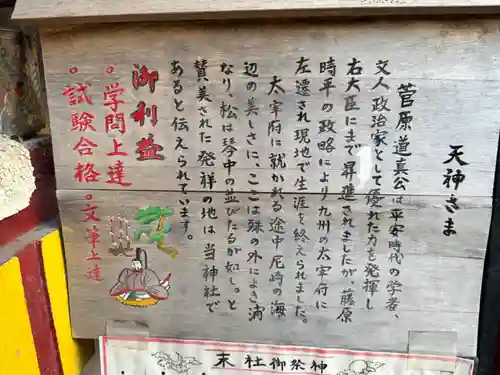 天神さま
菅原道真公は平安時代の学者、
文人政治家として優れた力を発揮し
右大臣にまで昇進されましたが、藤原
時平の政略により九州の太宰府に
左遷され現地で生涯を終えられました。
太宰府に就かれる途中尼崎の海
辺の美しさに、ここは殊の外によき浦
なり、松は琴中の並びたるが如し。と
賛美された発祥の地は当神社で
あると伝えられています。
御利益
。学問上達
。試験合格
。文筆上達
末社御祭神